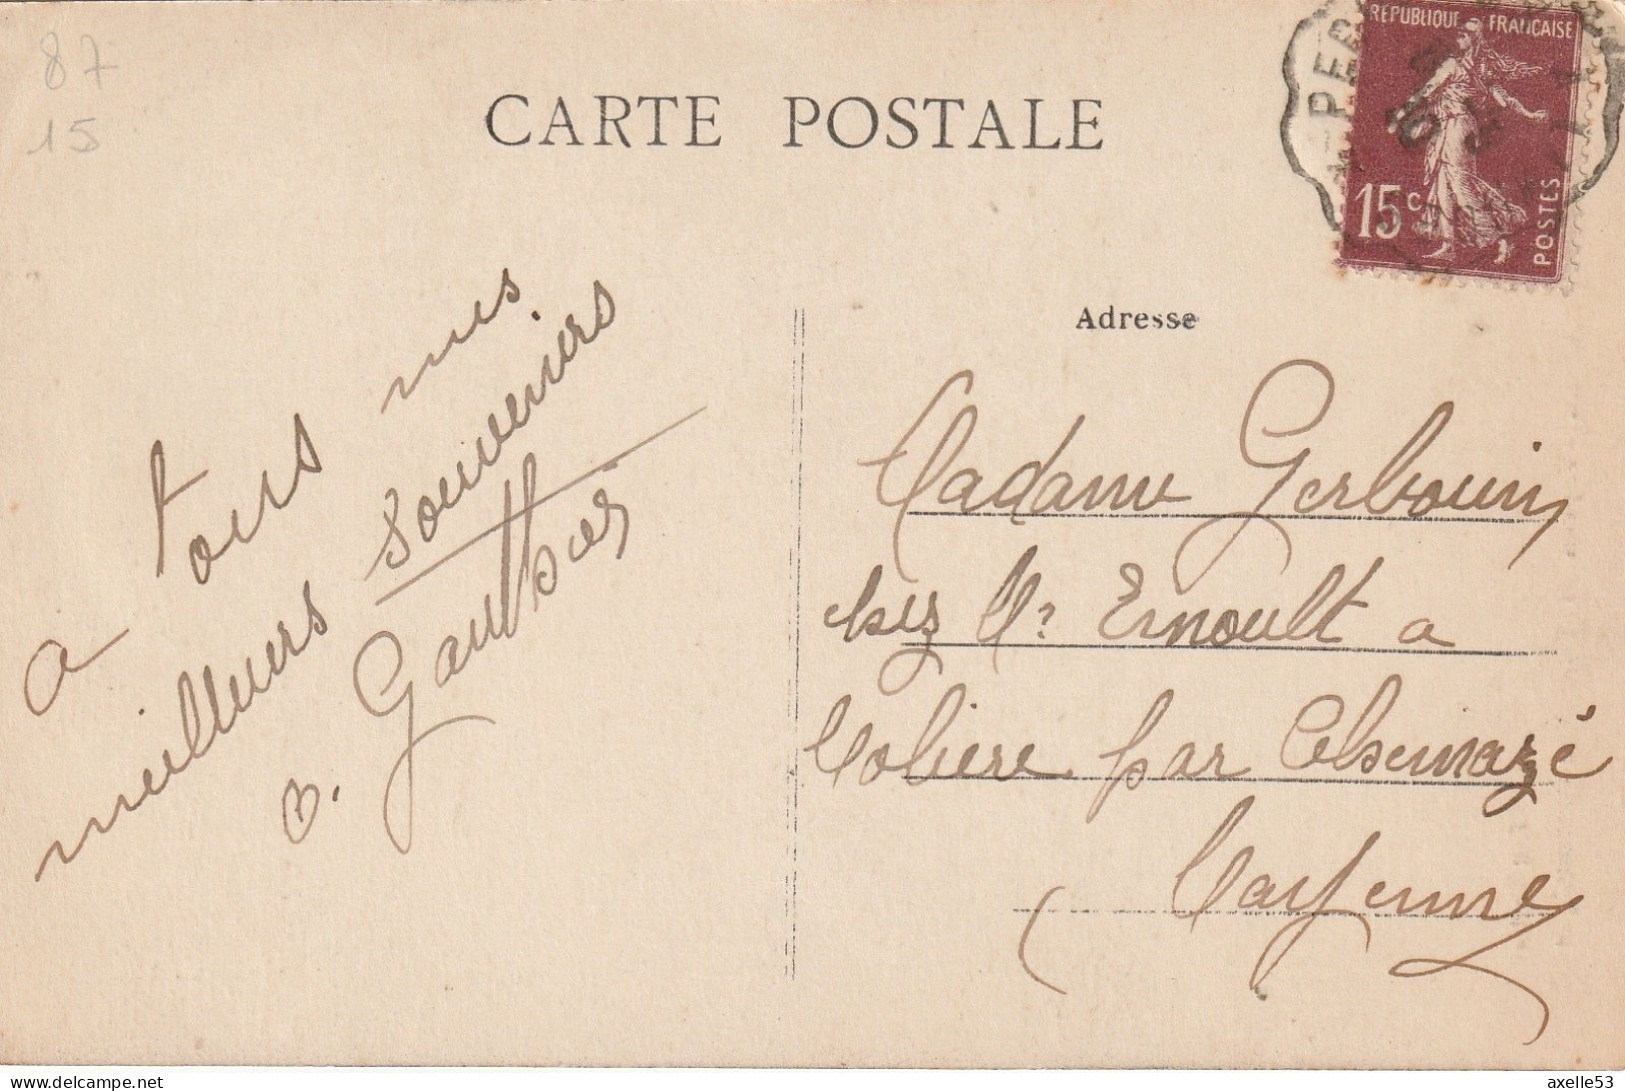 87
15
CARTE POSTALE
REPUBLIQUE FRANCAISE
15c
POSTES
a tous mes
meilleurs souveniers
Gauthier
Adresse
Madame Gerbouin
chez Mr Ernoult a
Moliere par Chemazé
Mayenne
axelle53